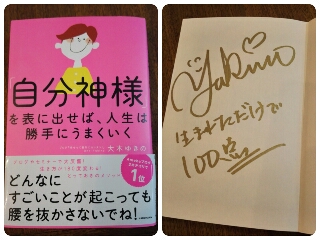 自分神様
を表に出せば、人生は
勝手にうまくいく
大木ゆきの
1位
どんなに
すごいことが起こっても
腰を抜かさないでね!
Yukino
生まれただけで
100点